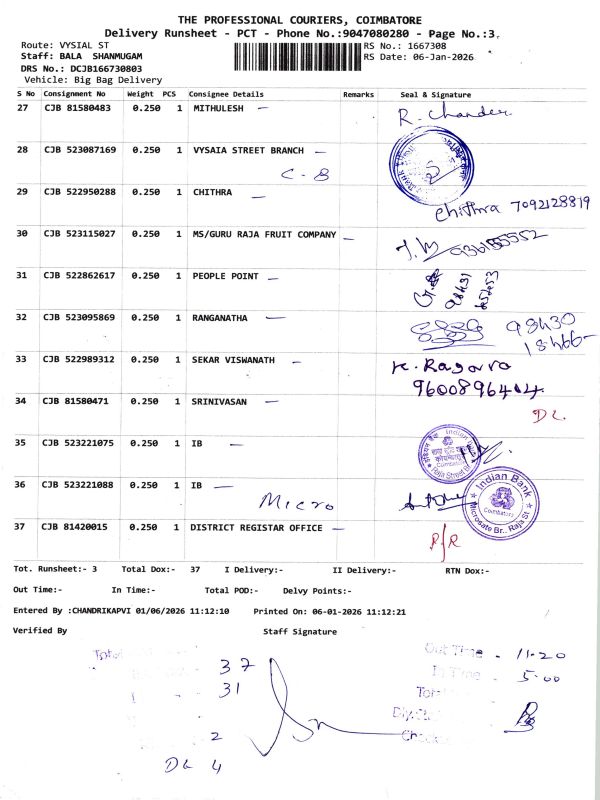 THE PROFESSIONAL COURIERS, COIMBATORE
Delivery Runsheet - PCT - Phone No.:9047080280 - Page No.:3.
Route: VYSIAL ST
RS No.: 1667308
Staff: BALA SHANMUGAM
RS Date: 06-Jan-2026
DRS No.: DCJB166730803
Vehicle: Big Bag Delivery
S No Consignment No Weight PCS Consignee Details Remarks Seal & Signature
27 CJB 81580483 0.250 1 MITHULESH — R. Chander
28 CJB 523087169 0.250 1 VYSAIA STREET BRANCH —
C-B
29 CJB 522950288 0.250 1 CHITHRA —
Chithra 7092128819
30 CJB 523115027 0.250 1 MS/GURU RAJA FRUIT COMPANY —
31 CJB 522862617 0.250 1 PEOPLE POINT —
32 CJB 523095869 0.250 1 RANGANATHA — 98430
18466-
33 CJB 522989312 0.250 1 SEKAR VISWANATH —
9600896404
34 CJB 81580471 0.250 1 SRINIVASAN —
DL
35 CJB 523221075 0.250 1 IB —
Indian Bank
Coimbatore
36 CJB 523221088 0.250 1 IB —
Micro
Indian Bank
Coimbatore
Microsate Br., Raja St
37 CJB 81420015 0.250 1 DISTRICT REGISTAR OFFICE — R/R
Tot. Runsheet:- 3 Total Dox:- 37 I Delivery:- II Delivery:- RTN Dox:-
Out Time:- In Time:- Total POD:- Delvy Points:-
Entered By :CHANDRIKAPVI 01/06/2026 11:12:10 Printed On: 06-01-2026 11:12:21
Verified By Staff Signature
Out Time - 11-20
37
In Time - 5-00
31
2
DL 4